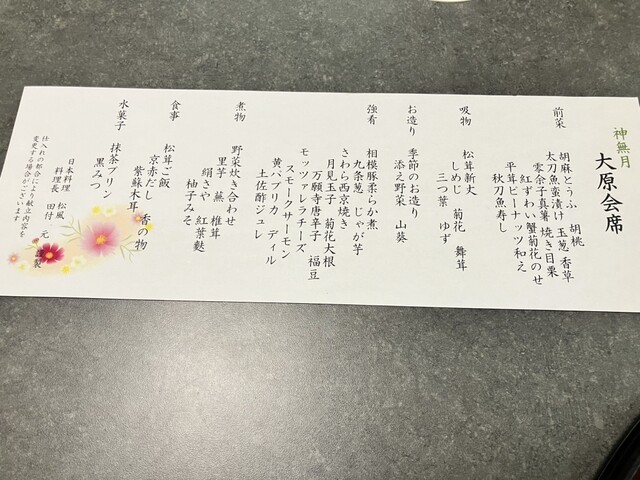 神無月
大原会席
前菜
胡麻とうふ 胡桃
太刀魚蛮漬け 玉葱 香草
零余子真薯 焼き目栗
紅ずわい蟹菊花のせ
平茸ピーナッツ和え
秋刀魚寿し
吸物
松茸新丈
しめじ 菊花 舞茸
三つ葉 ゆず
お造り
季節のお造り
添え野菜 山葵
強肴
相模豚柔らか煮
九条葱 じゃが芋
さわら西京焼き
月見玉子 菊花大根
万願寺唐辛子 福豆
モッツァレラチーズ
スモークサーモン
黄パプリカ ディル
土佐酢ジュレ
煮物
野菜炊き合わせ
里芋 蕪 椎茸
絹さや 紅葉麩
柚子みそ
食事
松茸ご飯
京赤だし 香の物
紫蘇木耳
水菓子
抹茶プリン
黒みつ
日本料理 松風
料理長 田付 元 謹製
仕入れの都合により献立内容を
変更する場合がございます